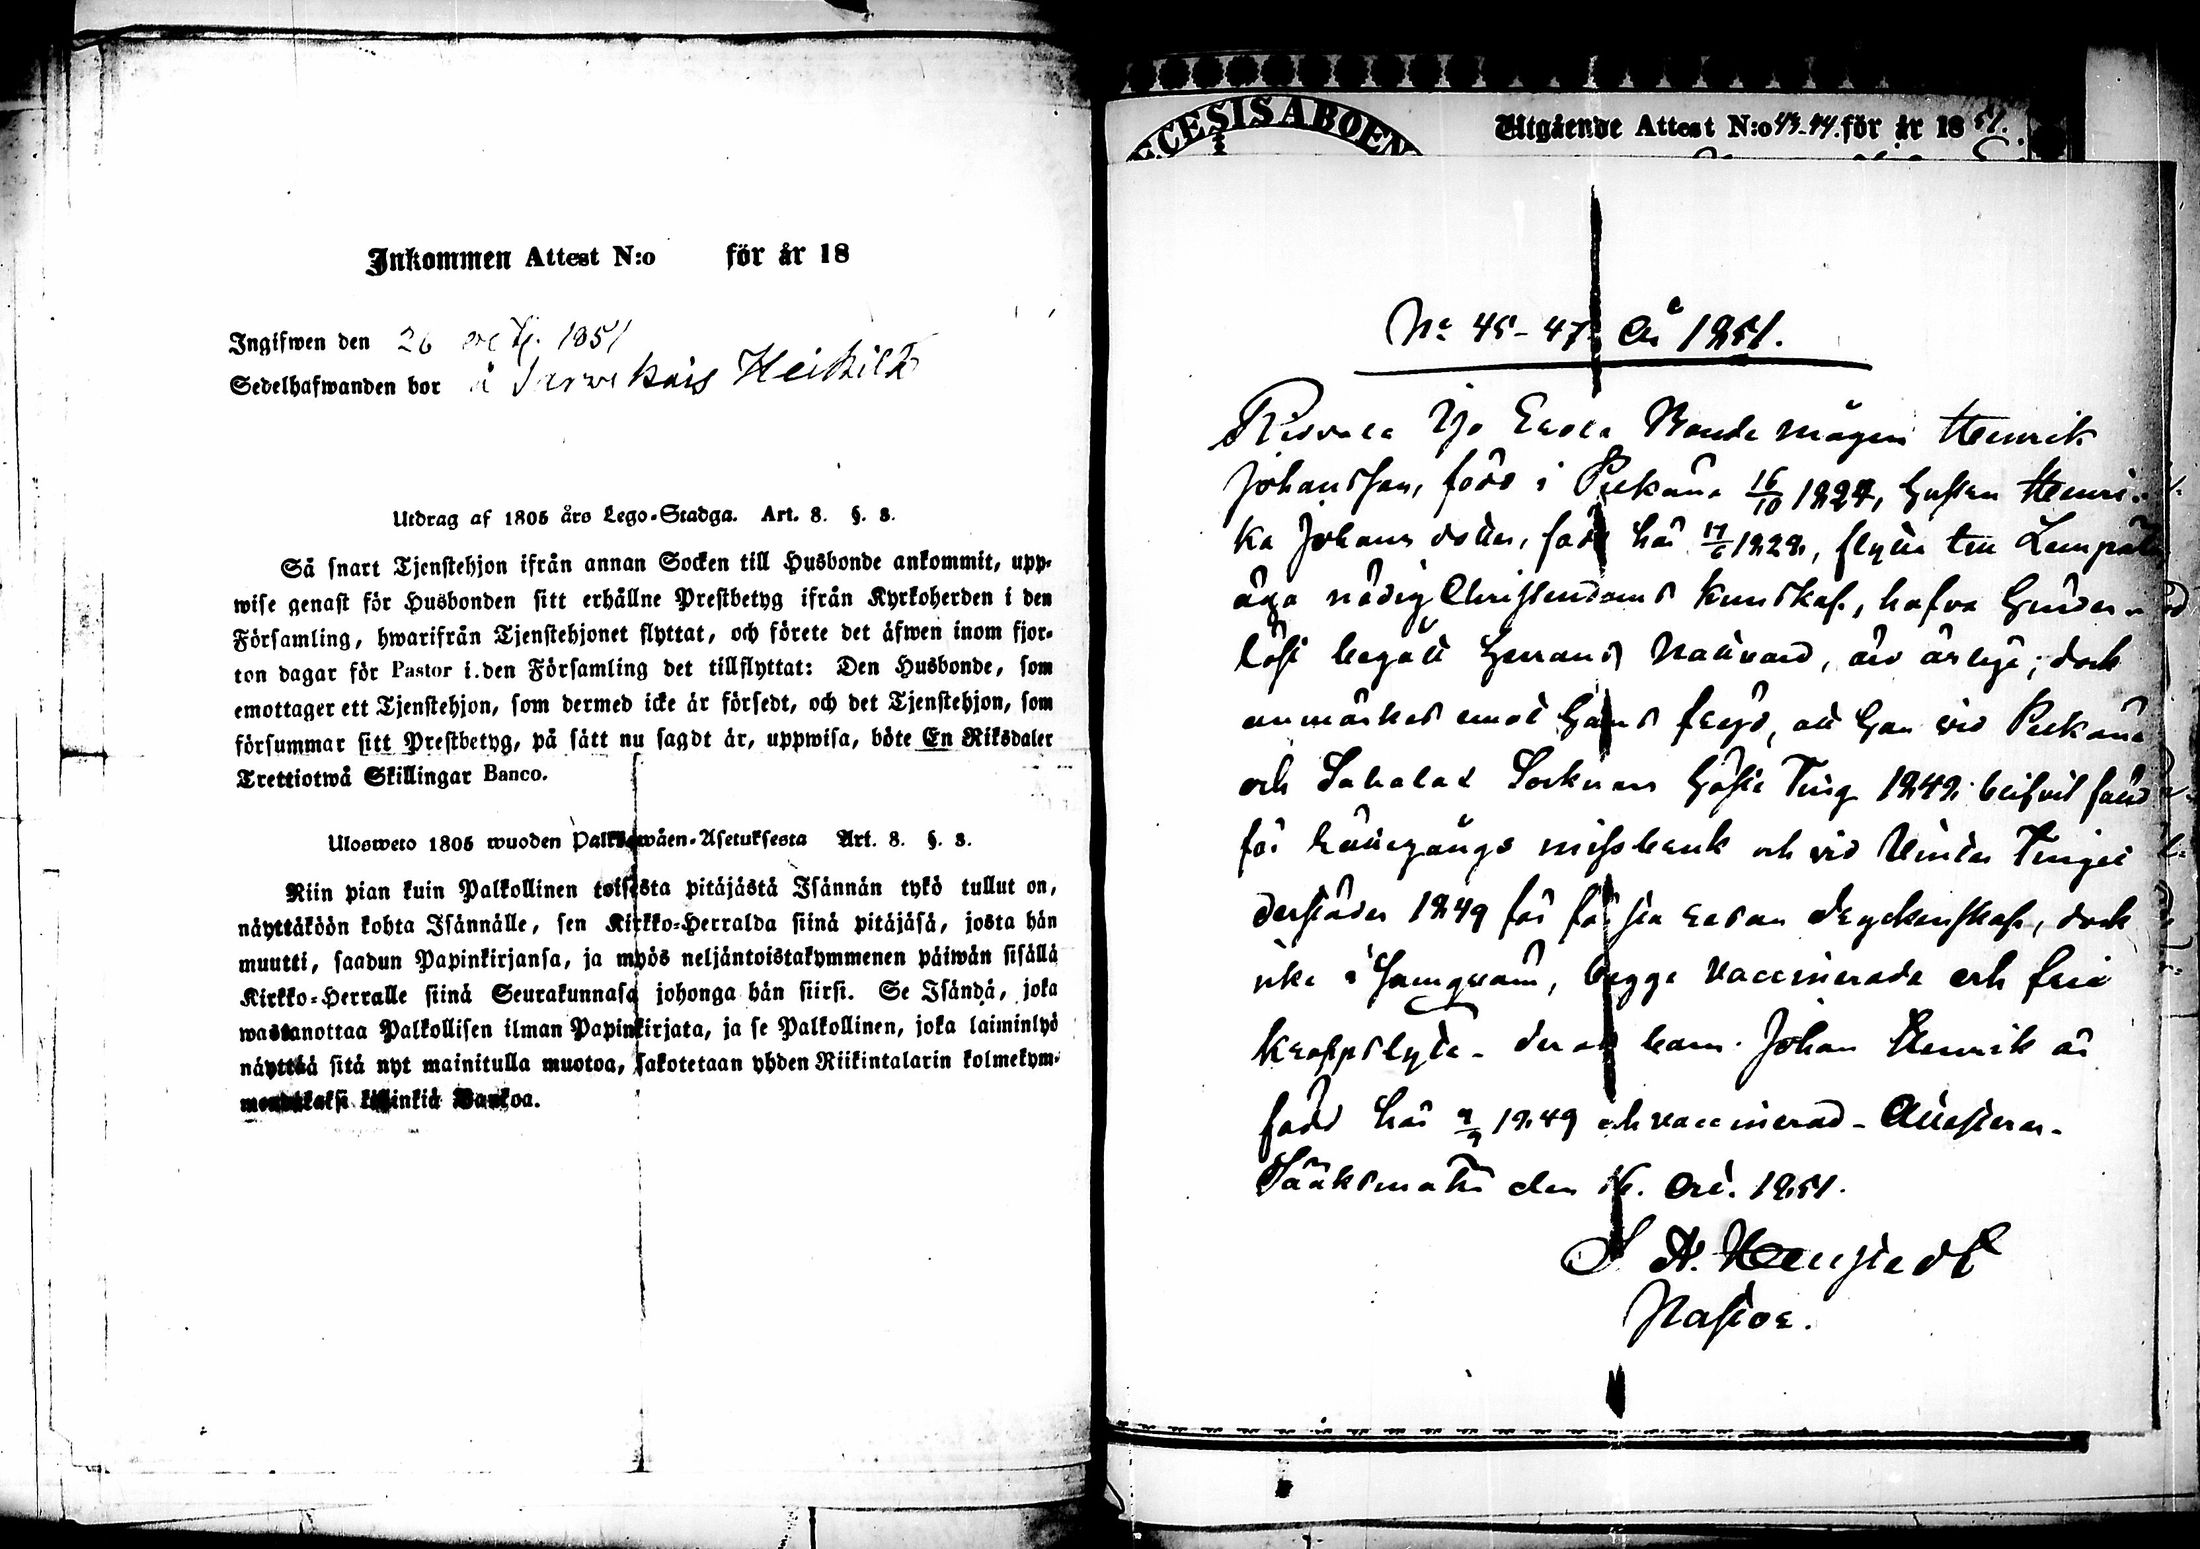 Inkommen Attest N:o för år 18
Ingifwen den 26 octb. 1851
Sedelhafwanden bor å Sarvikais Heikilä
Utdrag af 1805 års Lego-Stadga. Art. 8. §. 8.
Så snart Tjenstehjon ifrån annan Socken till Husbonde ankommit, upp-
wise genast för Husbonden sitt erhållne Prestbetyg ifrån Kyrkoherden i den
Församling, hwarifrån Tjenstehjonet flyttat, och förete det äfwen inom fjor-
ton dagar för Pastor i den Församling det tillflyttat: Den Husbonde, som
emottager ett Tjenstehjon, som dermed icke är försedt, och det Tjenstehjon, som
försummar sitt Prestbetyg, på sätt nu sagdt är, uppwisa, böte En Riksdaler
Trettiotwå Skillingar Banco.
Ulosweto 1805 wuoden Palkkawäen-Asetuksesta Art. 8. §. 8.
Niin pian kuin Palkollinen toisesta pitäjästä Isännän tykö tullut on,
näyttäköön kohta Isännälle, sen Kirkko-Herralda siinä pitäjäsä, josta hän
muutti, saadun Papinkirjansa, ja myös neljäntoistakymmenen päiwän sisällä
Kirkko-Herralle siinä Seurakunnasa johonga hän siirsi. Se Isändä, joka
wastanottaa Palkollisen ilman Papinkirjata, ja se Palkollinen, joka laiminlyö
näyttää sitä nyt mainitulla muotoa, sakotetaan yhden Riikintalarin kolmekym-
mendäkaksi killinkiä Bankoa.
ECESIS ABOEN
Utgående Attest N:o 43-44. för år 1851.
No 45-47 År 1851.
Bonde mågen Henrik
Johansson, född i Pelkäne 16/10 1827, hustru Henri-
ka Johansdotter, född här 17/6 1828, flytta till Lempälä
äga nödig Christendoms kunskap, hafva hinder-
löst begått Herrans Nattvard, äro ärlige; dock
anmärkes emot hans frejd, att han vid Pelkäne
och Sahalax Socknars Höste Ting 1848 blifvit fälld
för Rättegångs missbruk och vid Vinter Tinget
derstädes 1849 för första resan dryckenskap, dock
icke i samqväm, begge vaccinerade och fria
kroppslyte - deras barn Johan Henrik är
född här 9/9 1849 och vaccinerad - Attesterar.
Sääksmäki den 16. Oct. 1851.
Pastor.